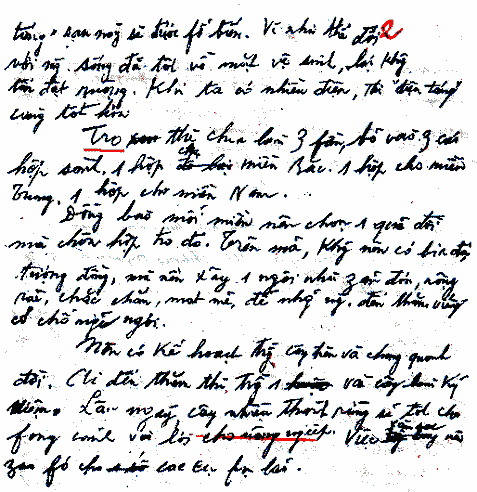 táng" sau này sẽ được fổ biến. Vì như thế đối 2
với ng sống đã tốt về mặt vệ sinh, lại khg
tốn đất ruộng. Khi ta có nhiều điện, thì "điện táng"
càng tốt hơn
Tro thì chia làm 3 fần, bỏ vào 3 cái
hộp sành. 1 hộp cho miền Bắc. 1 hộp cho miền
Trung. 1 hộp cho miền Nam.
Đồng bào mỗi miền nên chọn 1 quả đồi
mà chôn hộp tro đó. Trên mả, khg nên có bia đá
tượng đồng, mà nên xây 1 ngôi nhà zản đơn, rộng
rãi, chắc chắn, mát mẻ, để nhg ng. đến thăm viếng
có chỗ nghỉ ngơi.
Nên có kế hoạch trg cây trên và chung quanh
đồi. Ai đến thăm thì trg 1 vài cây làm kỷ
niệm. Lâu ngày cây nhiều thành rừng sẽ tốt cho
fong cảnh và lợi cho nông nghiệp. Việc săn sóc nên
zao fó cho các cụ fụ lão.